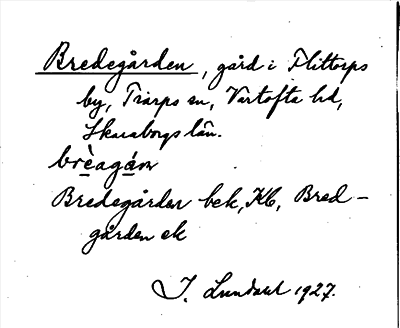 Bredegården, gård i Flittorps
by, Tiarps sn, Vartofta hd,
Skaraborgs län.
brèagán
Bredegården bek, Kb, Bred-
gården ek
J. Lundahl 1927.